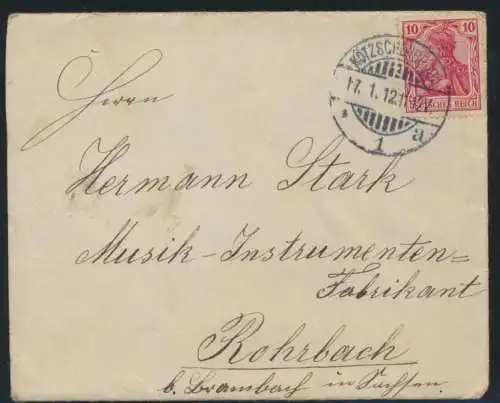 10 10
DEUTSCHES REICH
KÖTZSCHENBRODA
17.1.12.11-12
* 1 a
Herrn
Hermann Stark
Musik-Instrumenten=
Fabrikant
Rohrbach
b. Brambach in Sachsen.